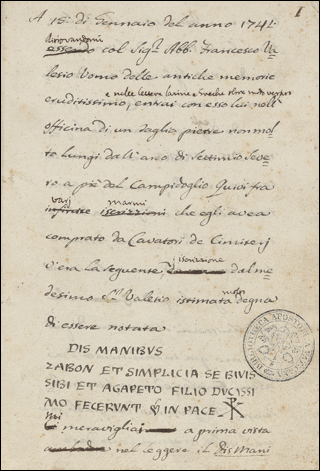 1
A 18: di Gennaro del anno 1741.
ritrovandomi
essendo col Sig.r Abb. Francesco Va
lesio Uomo delle antiche memorie
e nelle lettere latine e Greche oltre modo versato
eruditissimo, entrai con esso lui nell'
officina di un taglia pietre non mol=
to lungi dall'arco di Settimio Seve
ro a piè del Campidoglio Quivi fra
varj marmi
infinite iscrizioni che egli avea
comprato da Cavatori de Cimiterj
iscrizione
v'era la seguente dal me
desimo S.r Valesio istimata molto degna
di essere notata
DIS MANIBVS
ZABON ET SIMPLICIA SE BIVIS
SIBI ET AGAPETO FILIO DVCISSI
MO FECERVNT IN PACE ☧
mi meravigliai a prima vista
nel leggere il Dis Mani
BIBLIOTHECA APOSTOLICA VATICANA